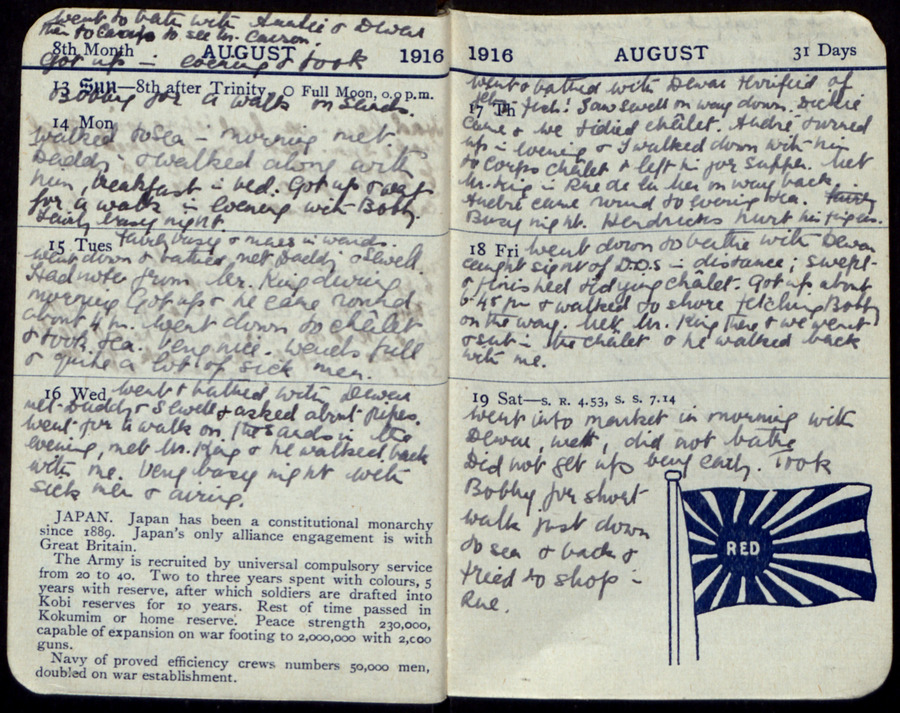 went to bathe with Andrée & Dewar
then to Camps to see Mr.
8th Month AUGUST 1916
Got up in evening & took
13 Sun—8th after Trinity. O Full Moon, 0.0 p.m.
Bobby for a walk on Sands.
14 Mon
Walked to sea in morning met
Daddy & walked along with
him, breakfast in bed. Got up & went
for a walk in evening with Bobby.
Fairly busy night.
15 Tues Fairly busy & in wards.
Went down & bathed, met Daddy & Sewell.
Had note from Mr. King during
morning Got up & he came round
about 4 pm. Went down to châlet
& took tea. Very nice. Wards full
& quite a lot of sick men.
16 Wed Went & bathed with Dewar
met Daddy & Sewell & asked about pipes.
Went for a walk on the sands in the
evening, met Mr. King & he walked back
with me. Very busy night with
sick men & airing.
JAPAN. Japan has been a constitutional monarchy
since 1889. Japan's only alliance engagement is with
Great Britain.
The Army is recruited by universal compulsory service
from 20 to 40. Two to three years spent with colours, 5
years with reserve, after which soldiers are drafted into
Kobi reserves for 10 years. Rest of time passed in
Kokumim or home reserve. Peace strength 230,000,
capable of expansion on war footing to 2,000,000 with 2,000
guns.
Navy of proved efficiency crews numbers 50,000 men,
doubled on war establishment.
1916 AUGUST 31 Days
Went & bathed with Dewar Horrified of
17 Th Jelly Fish! Saw Sewell on way down. Dickie
came & we tidied châlet. André turned
up in evening & I walked down with him
to Corps châlet & left him for supper. Met
Mr. King in Rue de la Mer on way back.
André came round to evening tea. Fairly
Busy night. Hendricks hurt his fingers.
18 Fri Went down to bathe with Dewar
caught sight of D.D.S in distance; swept
& finished tidying châlet. Got up about
6.45 pm & walked to shore fetching Bobby
on the way. Met Mr. King there & we went
& sat in the châlet & he walked back
with me.
19 Sat—S. R. 4.53, S. S. 7.14
Went into market in morning with
Dewar, wet, did not bathe
Did not get up very early. Took
Bobby for short
walk just down
to sea & back &
tried to shop in
Rue.
RED